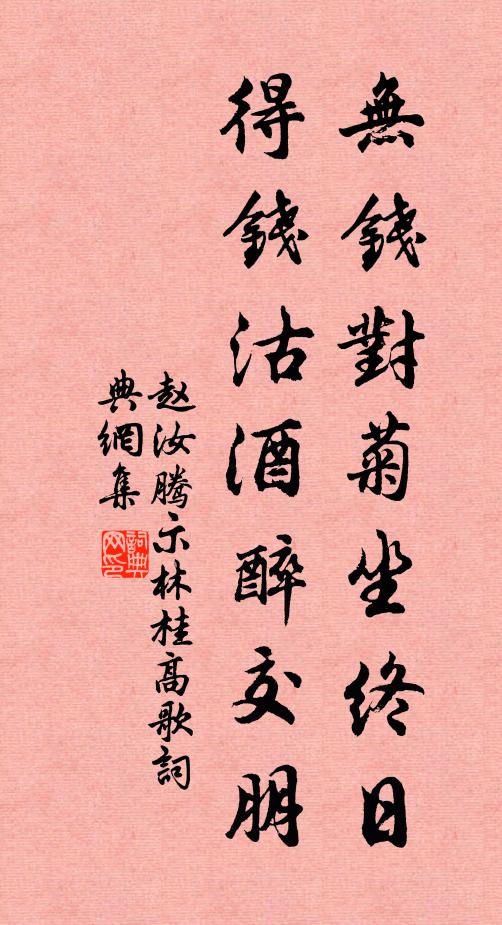 無錢對菊坐終日
得錢沽酒醉交朋
赵汝腾示林桂高歌詞
典網集
詞典
网印